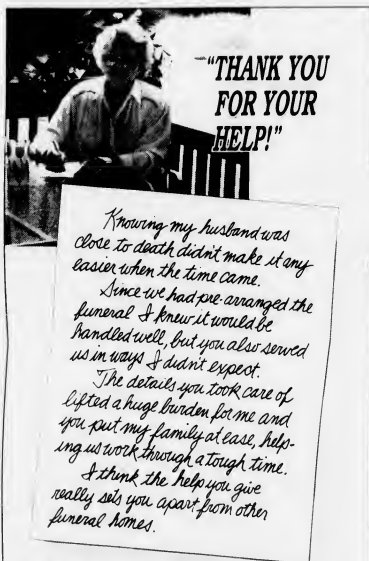 "THANK YOU
FOR YOUR
HELP!"
Knowing my husband was
close to death didn't make it any
easier when the time came.
Since we had pre-arranged the
funeral I knew it would be
handled well, but you also served
us in ways I didn't expect.
The details you took care of
lifted a huge burden for me and
you put my family at ease, help-
ing us work through a tough time.
I think the help you give
really sets you apart from other
funeral homes.